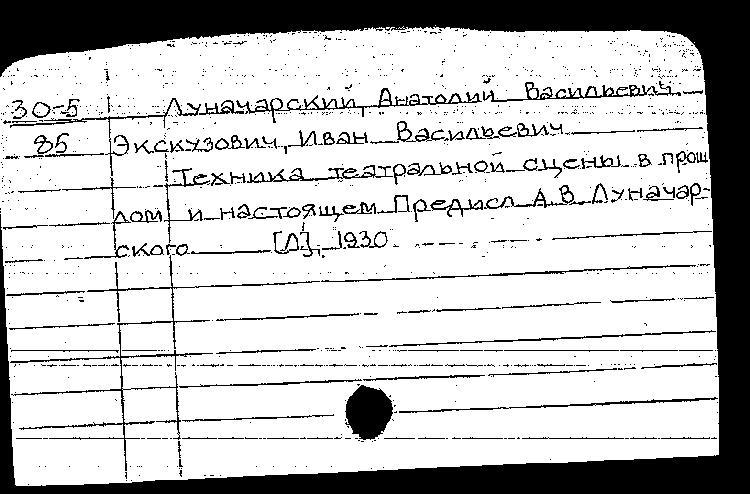 30-5 Луначарский, Анатолий Васильевич.
85 Экскузович, Иван Васильевич
Техника театральной сцены в прош
лом и настоящем Предисл А.В. Луначар-
ского. [Л], 1930.